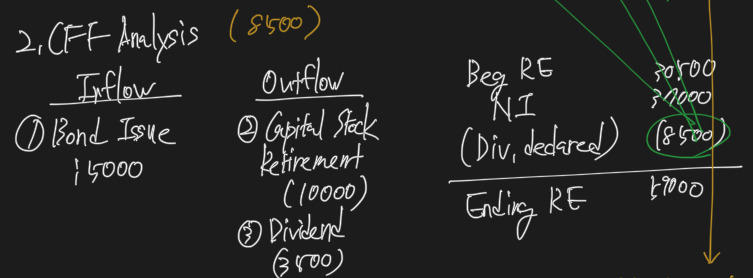 2, CFF Analysis (8500)
Inflow
① Bond Issue
15000
Outflow
② Capital Stock
Retirement
(10000)
③ Dividend
(3500)
Beg RE 30500
NI 37000
(Div, declared) (8500)
Ending RE 59000